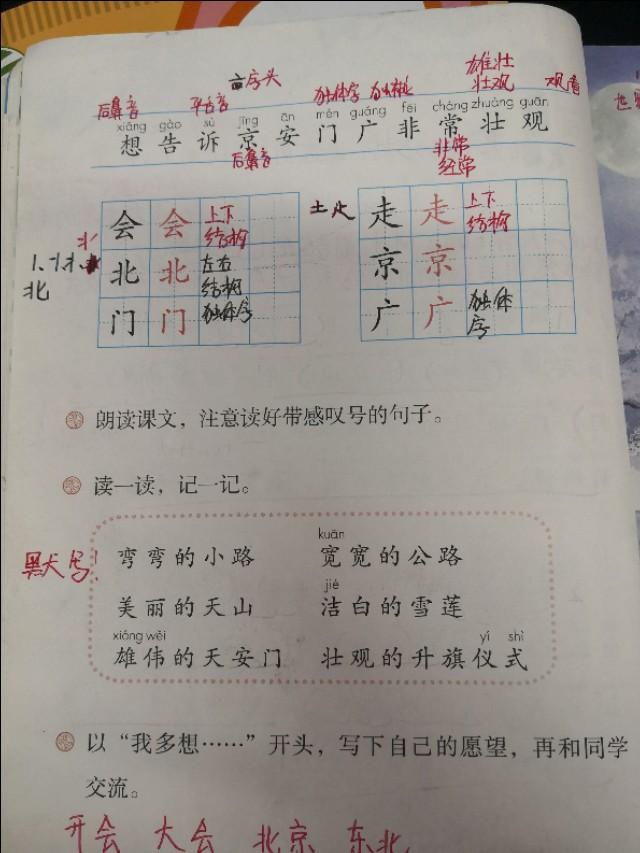 亠字头
雄壮
后鼻音 平舌音 独体字 壮观 观看
xiǎng gào sù jīng ān mén guǎng fēi cháng zhuàng guān
想 告 诉 京 安 门 广 非 常 壮 观
后鼻音 非常
经常
会 会 上下结构
土 走 走 上下结构
北 北 左右结构
京 京
北
门 门 独体字
广 广 独体字
朗读课文，注意读好带感叹号的句子。
读一读，记一记。
kuān
弯弯的小路 宽宽的公路
默写！
jié
美丽的天山 洁白的雪莲
xióng wěi yí shì
雄伟的天安门 壮观的升旗仪式
以“我多想……”开头，写下自己的愿望，再和同学
交流。
开会 大会 北京 东北